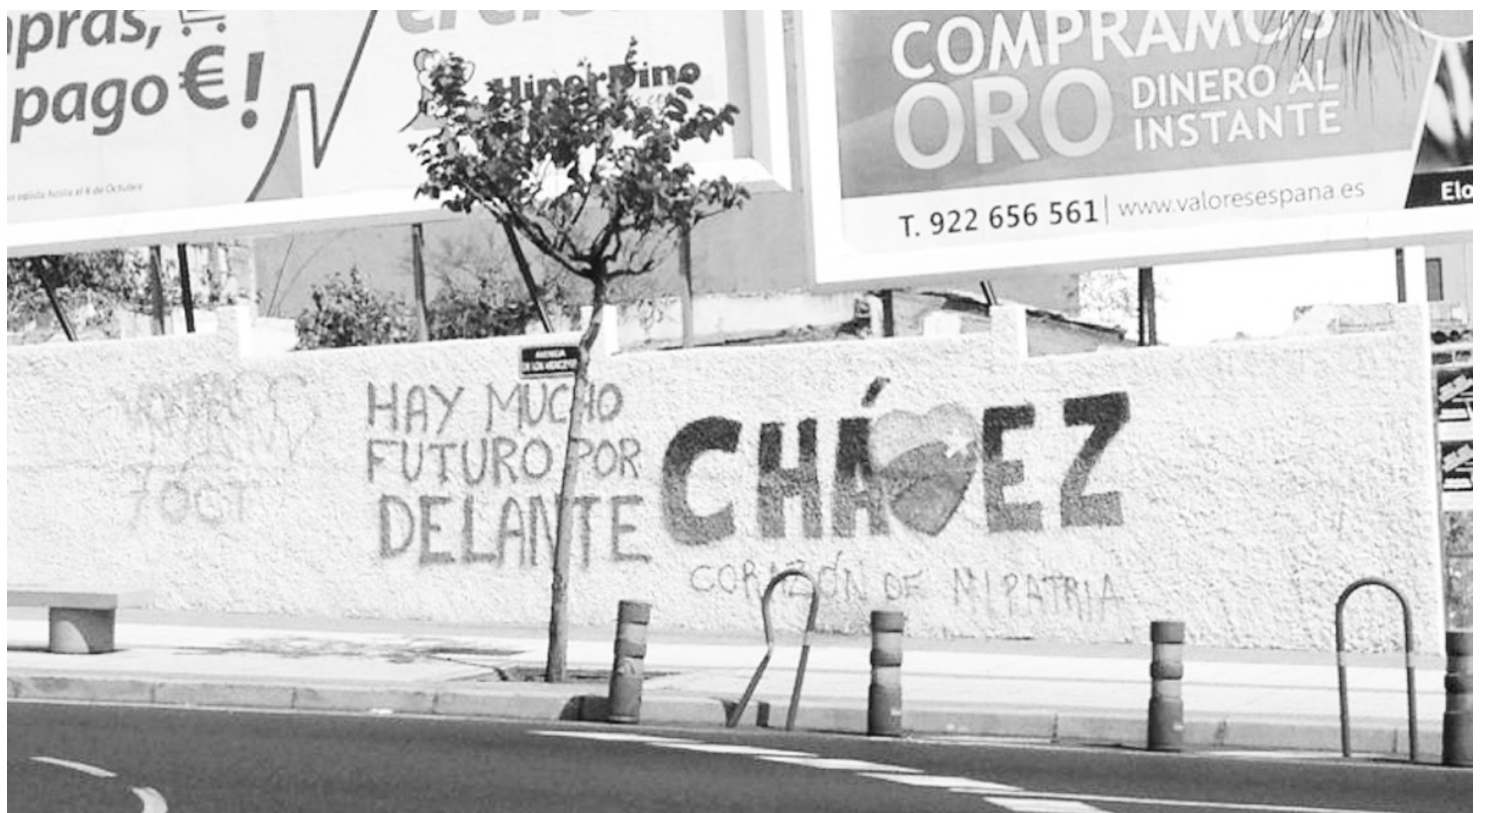 pras,
pago €!
HiperDino
COMPRAMOS
ORO DINERO AL
INSTANTE
T. 922 656 561 | www.valoresespana.es
Elo
AVENIDA
HAY MUCHO
FUTURO POR
DELANTE
CHÁVEZ
CORAZÓN DE MI PATRIA
7 OCT